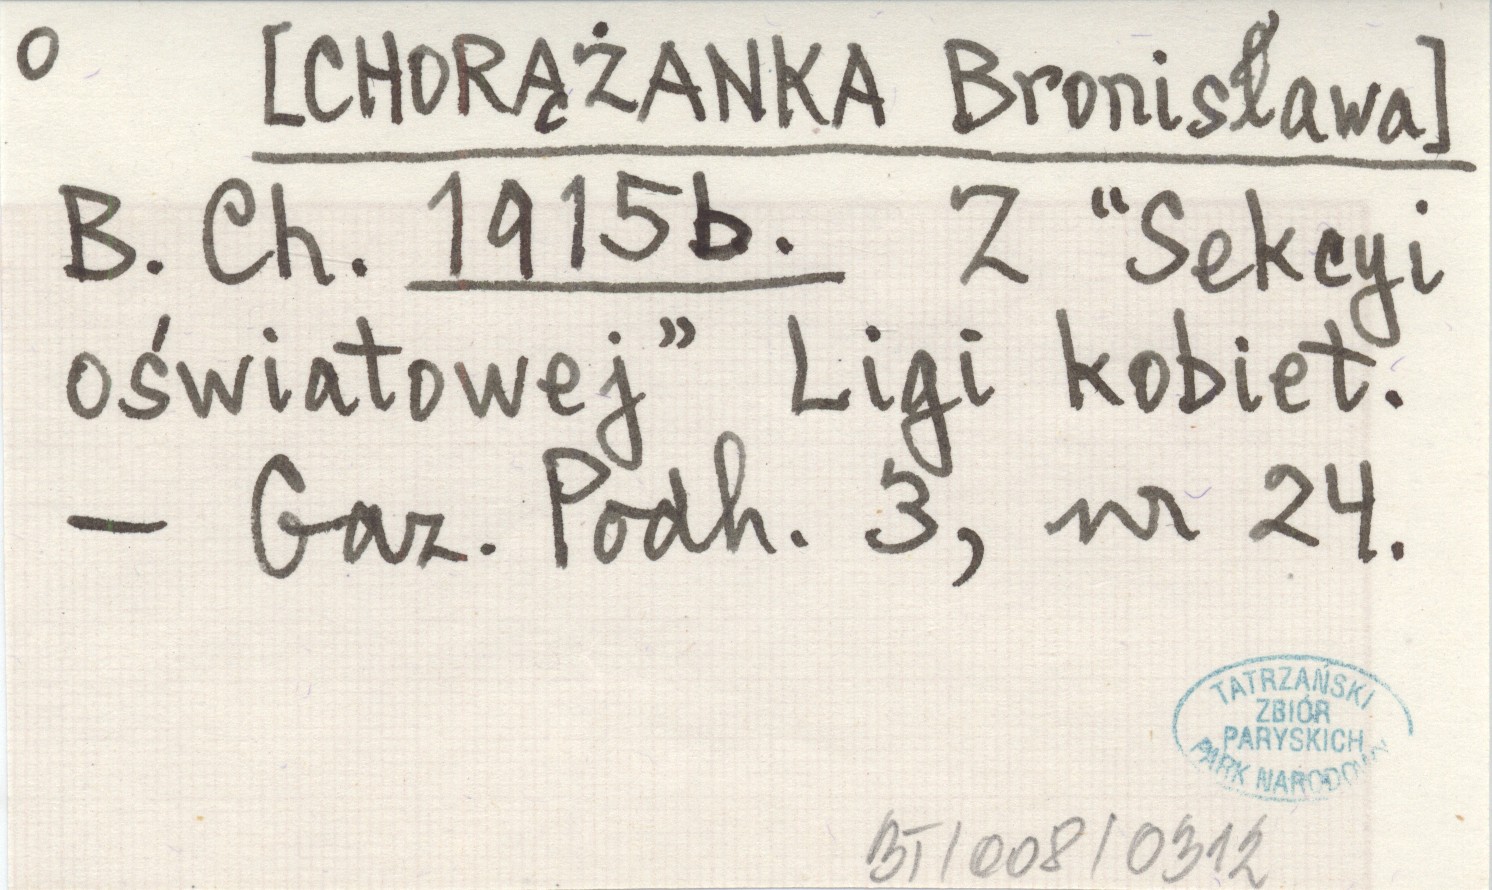 o [CHORĄŻANKA Bronisława]
B. Ch. 1915b. Z "Sekcyi
oświatowej" Ligi kobiet.
— Gaz. Podh. 3, nr 24.
TATRZAŃSKI
ZBIÓR
PARYSKICH
PARK NARODOWY
BT/008/0312